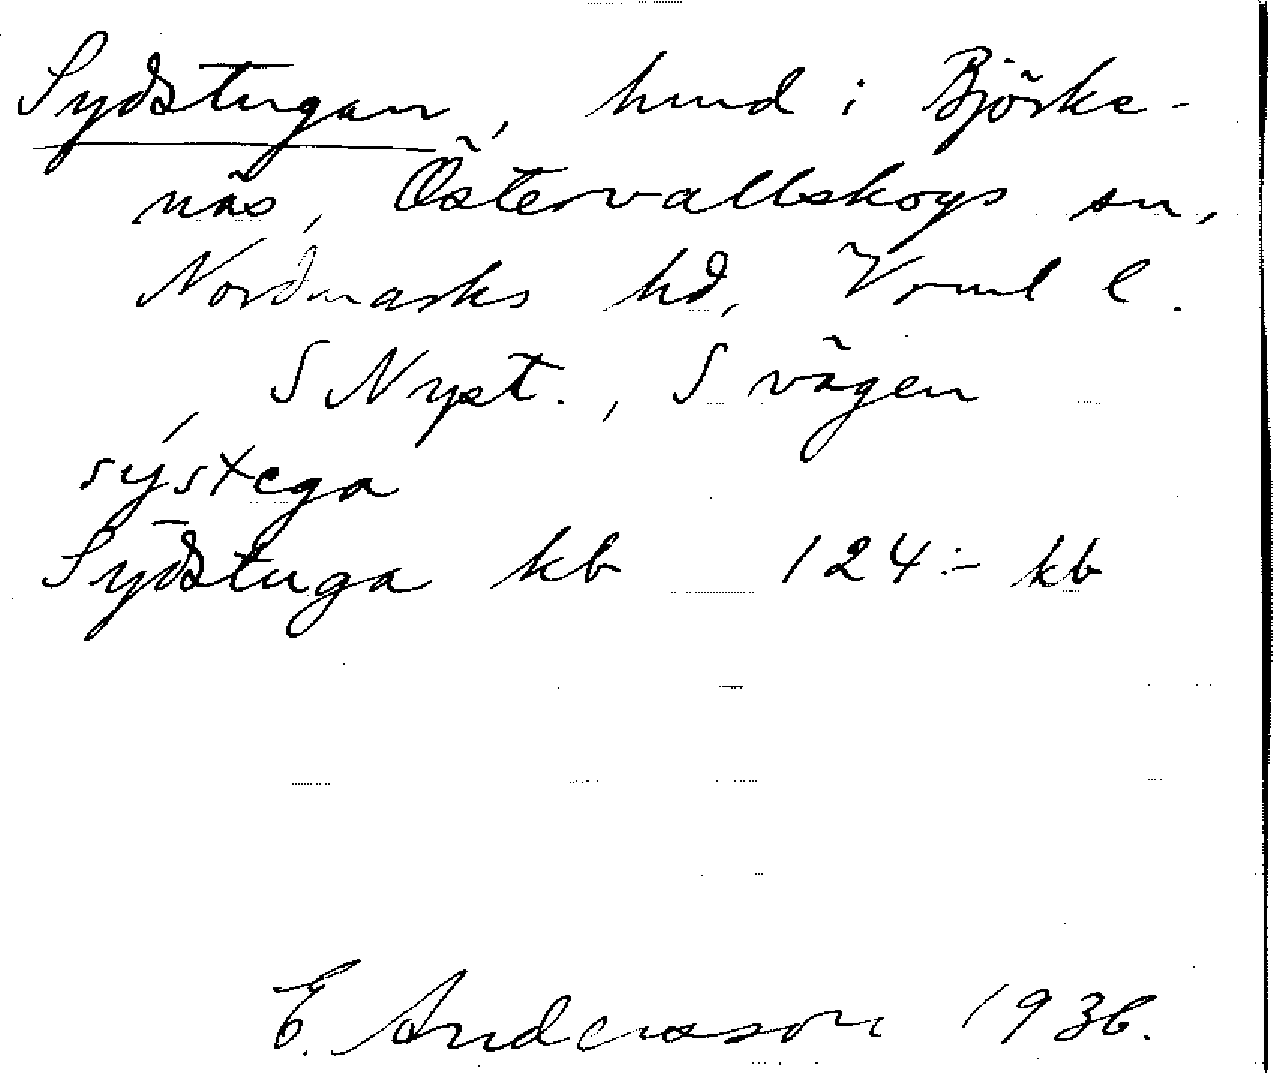 Sydstugan, hmd i Björke-
näs, Östervallskogs sn,
Nordmarks hd, Vrml l.
S Nyst., S vägen
sýstega
Sydstuga kb 124:- kb
E. Andersson 1936.